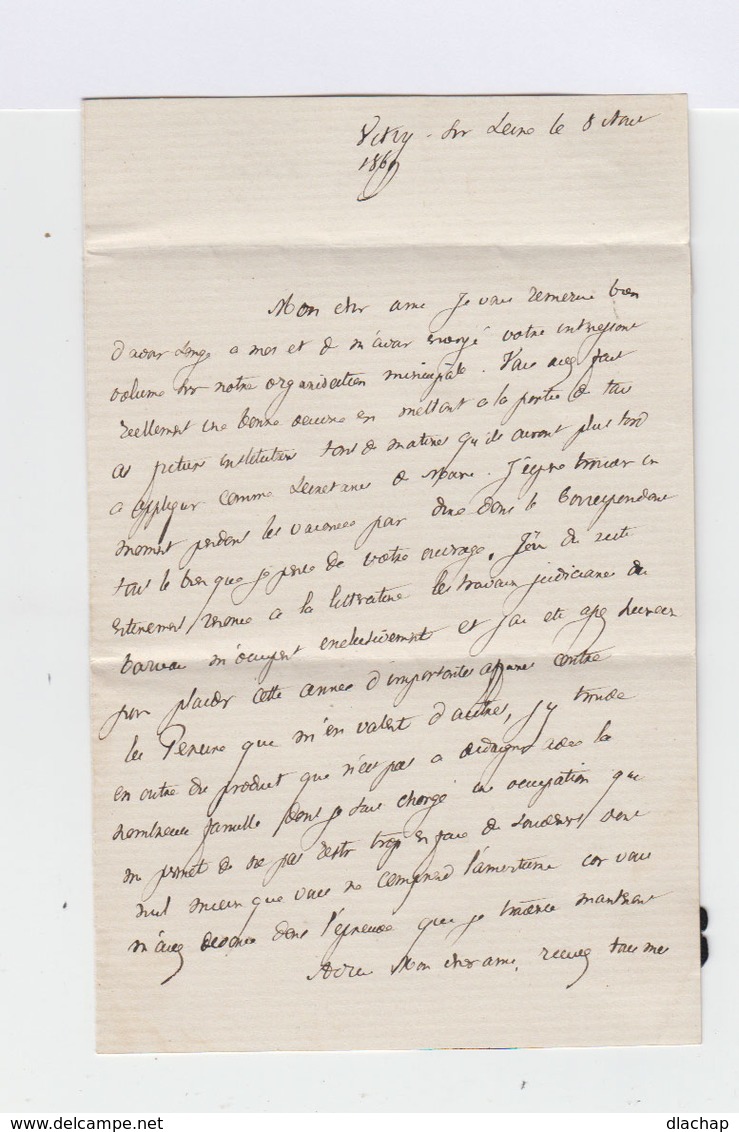 Vitry-sur Seine le 8 Aout
1869
Mon cher ami je vous remercie bien
d'avoir songé a moi et de m'avoir envoyé votre intéressant
volume sur notre organisation municipale. Vous avez fait
réellement une bonne oeuvre en mettant a la portée de tous
ces futurs instituteurs tant de matières qu'ils auront plus tard
a appliquer comme secretaires de Mairie. J'espère trouver un
moment pendant les vacances par dire dans le Correspondant
tout le bien que je pense de votre ouvrage. J'ai du reste
entièrement renoncé a la littérature les travaux judiciaires du
barreau m'occupent exclusivement et j'ai été assez heureux
pour plaider cette année d'importantes affaires contre
les que m'en valent d'autres, j'y trouve
en outre du produit que n'est pas a dédaigner avec la
nombreuse famille dont je suis chargé une occupation qui
me permet de ne pas rester trop en face de souvenirs dont
nul mieux que vous ne comprend l'amertume car vous
m'avez devancé dans l'épreuve que je traverse maintenant
Adieu Mon cher ami, recevez tous mes
www.delcampe.net
dlachap